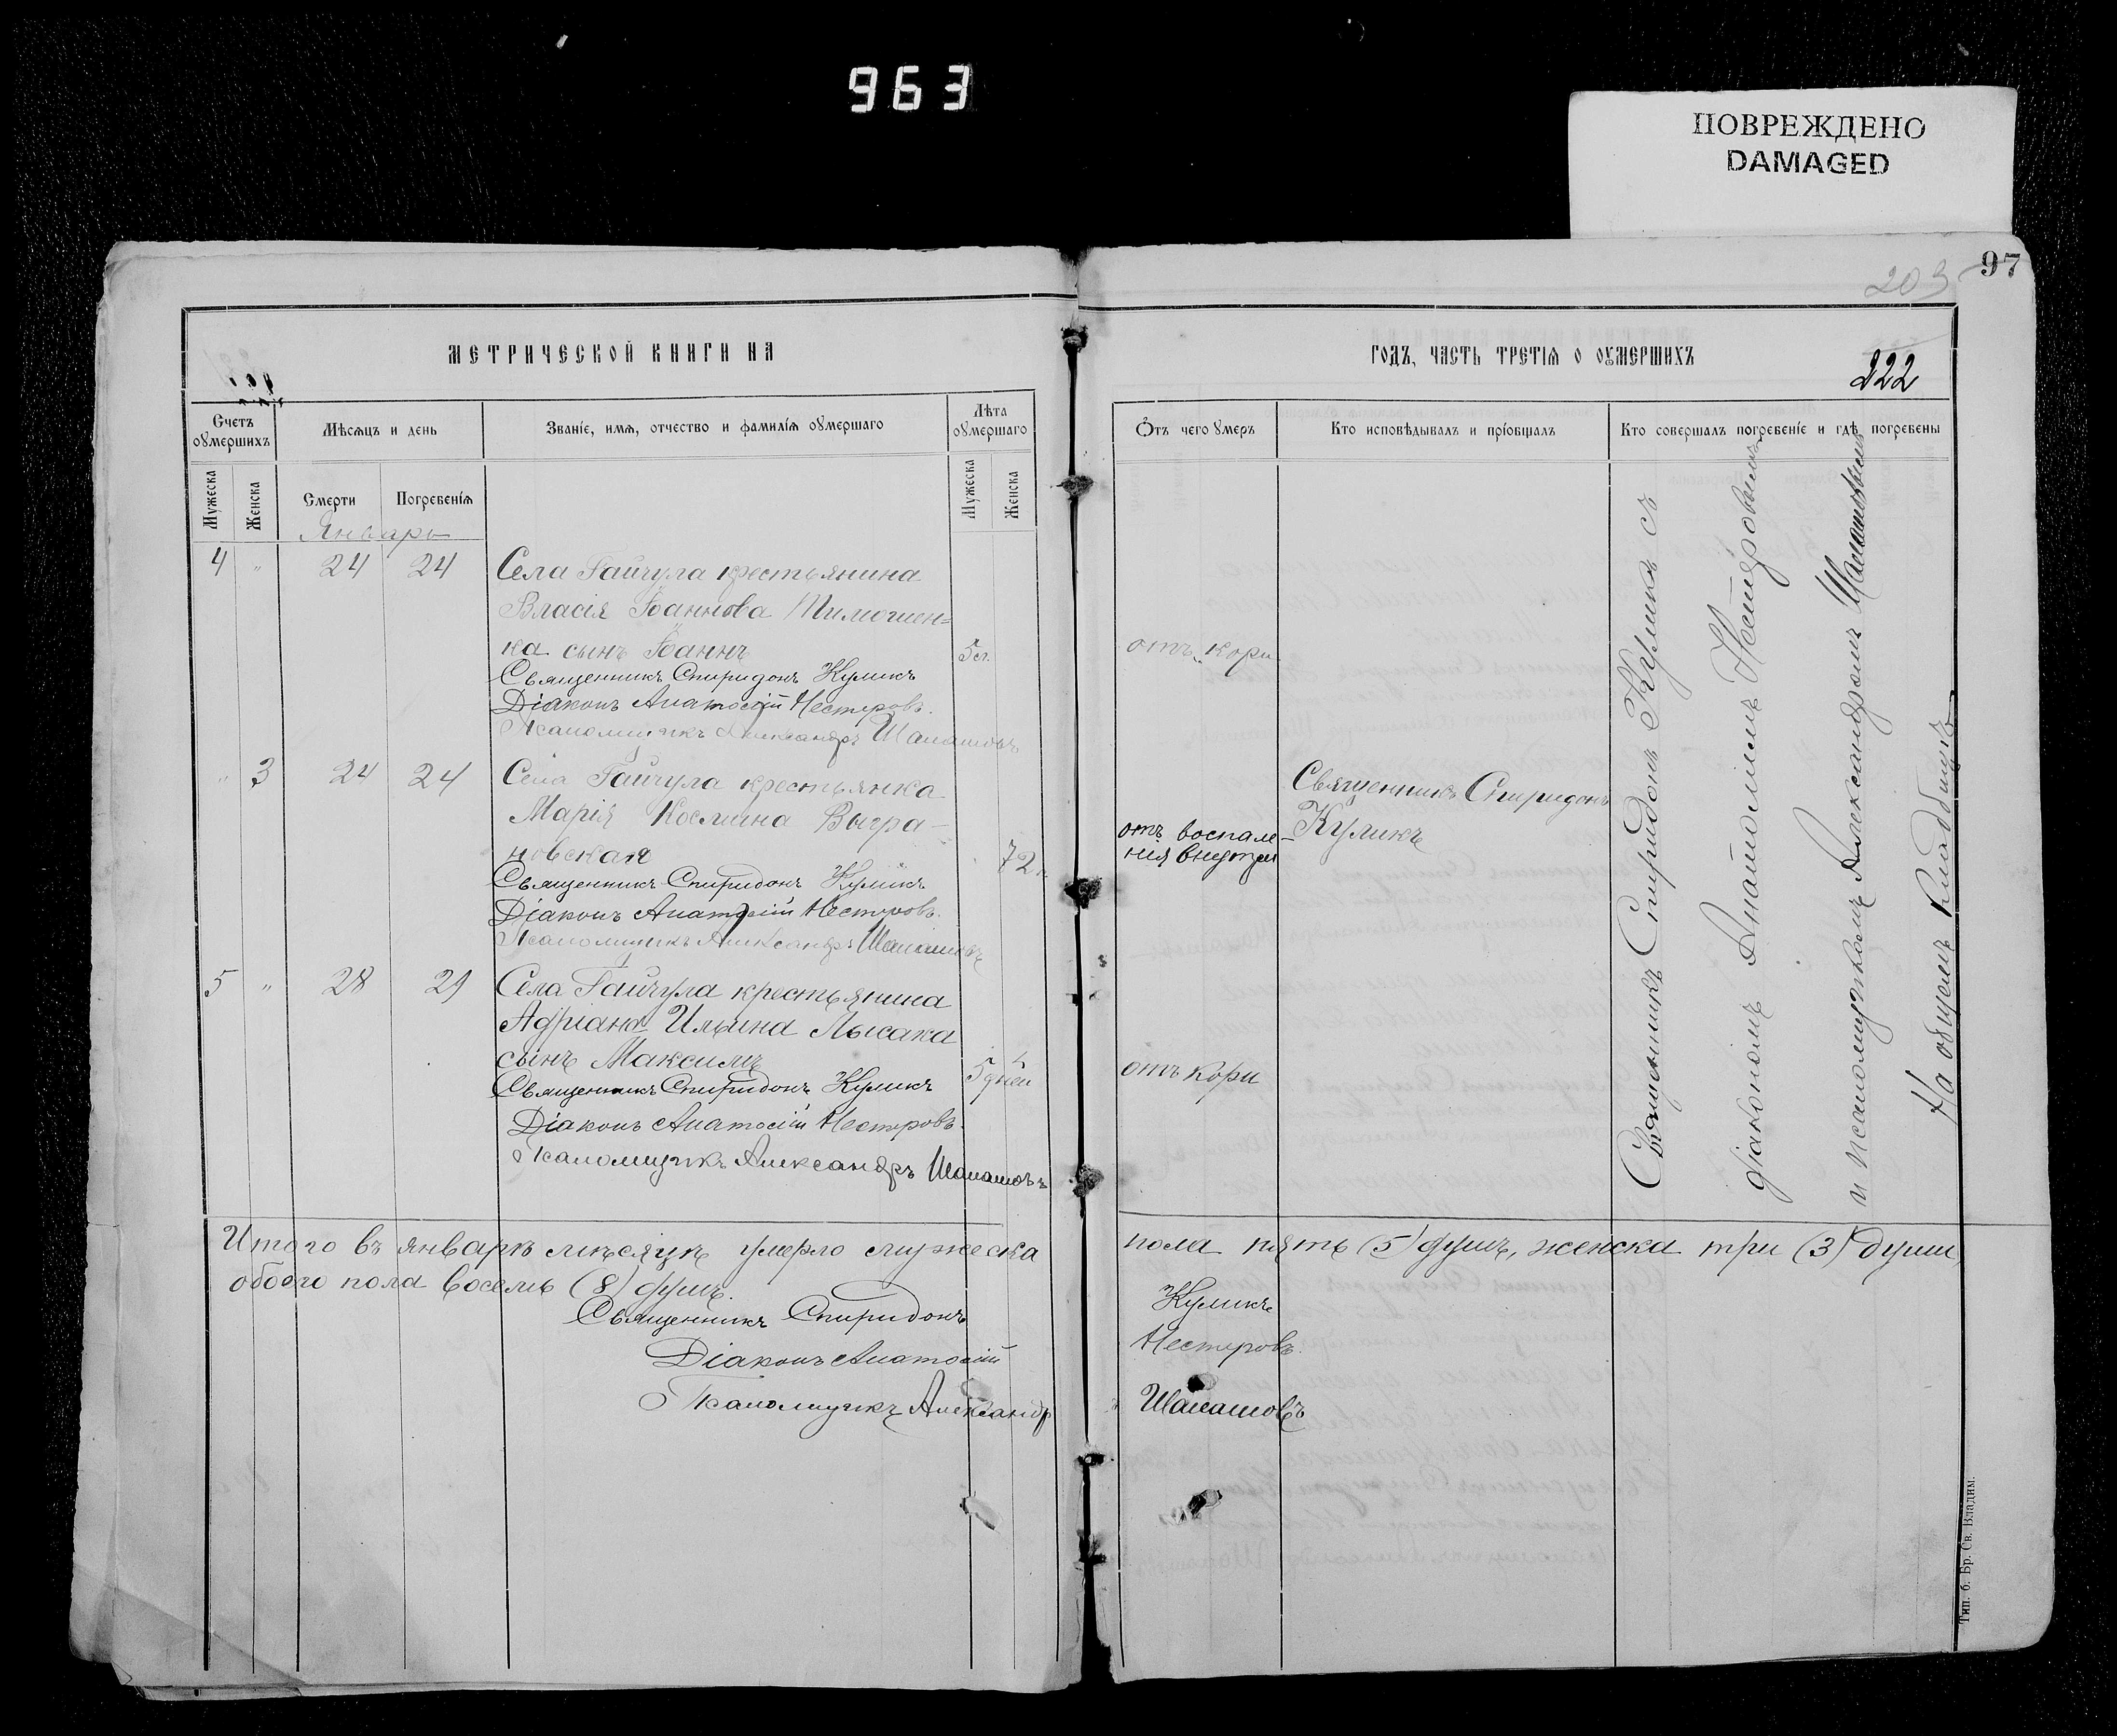 963
ПОВРЕЖДЕНО
DAMAGED
97
203
222
МЕТРИЧЕСКОЙ КНИГИ НА
ГОДЪ, ЧАСТЬ ТРЕТІЯ О ОУМЕРШИХЪ
Счетъ оумершихъ
Мѣсяцъ и день
Званіе, имя, отчество и фамилія оумершаго
Лѣта оумершаго
Отъ чего умеръ
Кто исповѣдывалъ и пріобщалъ
Кто совершалъ погребеніе и гдѣ погребены
Мужеска
Женска
Смерти
Погребенія
Мужеска
Женска
Январь
4 " 24 24 Села Гайчула крестьянина
Власія Іоаннова Тимошен=
ка сынъ Іоаннъ 5 отъ кори
Священникъ Спиридонъ Куликъ
Діаконъ Анатолій Нестеровъ.
Псаломщикъ Александръ
" 3 24 24 Села Гайчула крестьянка
Марія Космина Выгра-
новская 72
отъ воспале-
нія внутри
Священникъ Спиридонъ
Куликъ
Священникъ Спиридонъ Куликъ
Діаконъ Анатолій Нестеровъ.
Псаломщикъ Александръ
5 " 28 29 Села Гайчула крестьянина
Адріана Ильина Лысака
сынъ Максимъ 5 дней отъ кори
Священникъ Спиридонъ Куликъ
Діаконъ Анатолій Нестеровъ.
Псаломщикъ Александръ
Священникъ Спиридонъ Куликъ съ
діакономъ Анатоліемъ Нестеровымъ
и псаломщикомъ Александромъ
На общемъ кладбищѣ
Итого въ январѣ мѣсяцѣ умерло мужеска пола пять (5) душъ, женска три (3) души,
обоего пола восемь (8) душъ.
Священникъ Спиридонъ Куликъ
Діаконъ Анатолій Нестеровъ.
Псаломщикъ Александръ
Тип. б. Бр. Св. Владим.